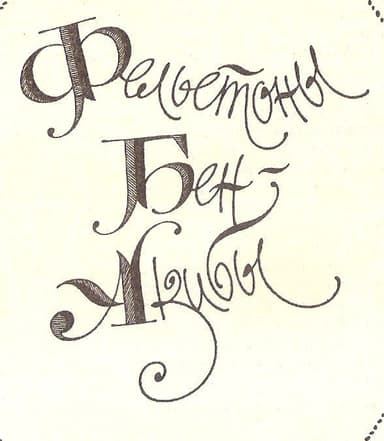 Фельетоны
Бен-
Акибы